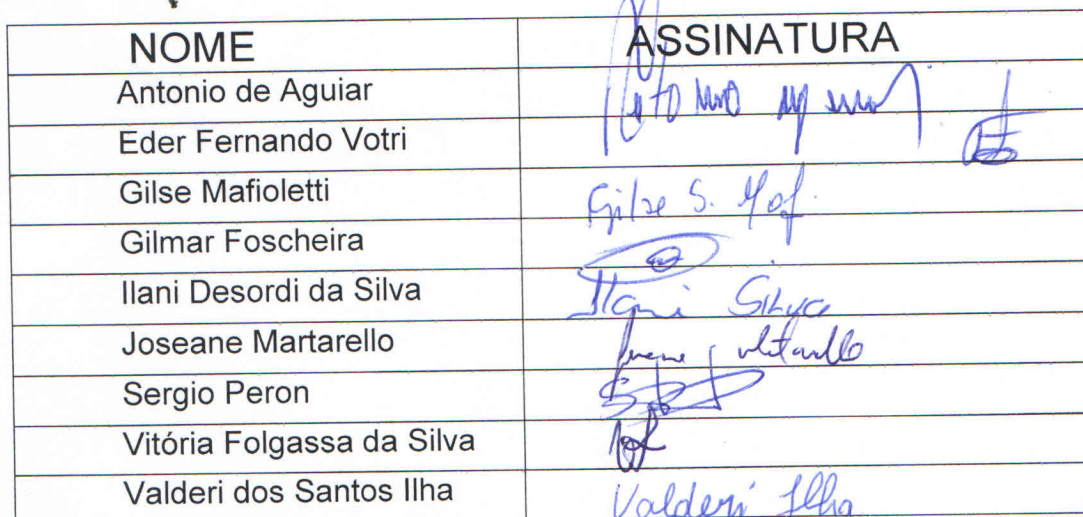 NOME ASSINATURA
Antonio de Aguiar
Eder Fernando Votri
Gilse Mafioletti Gilse S. Maf.
Gilmar Foscheira
Ilani Desordi da Silva Ilani Silva
Joseane Martarello
Sergio Peron
Vitória Folgassa da Silva
Valderi dos Santos Ilha Valderi Ilha